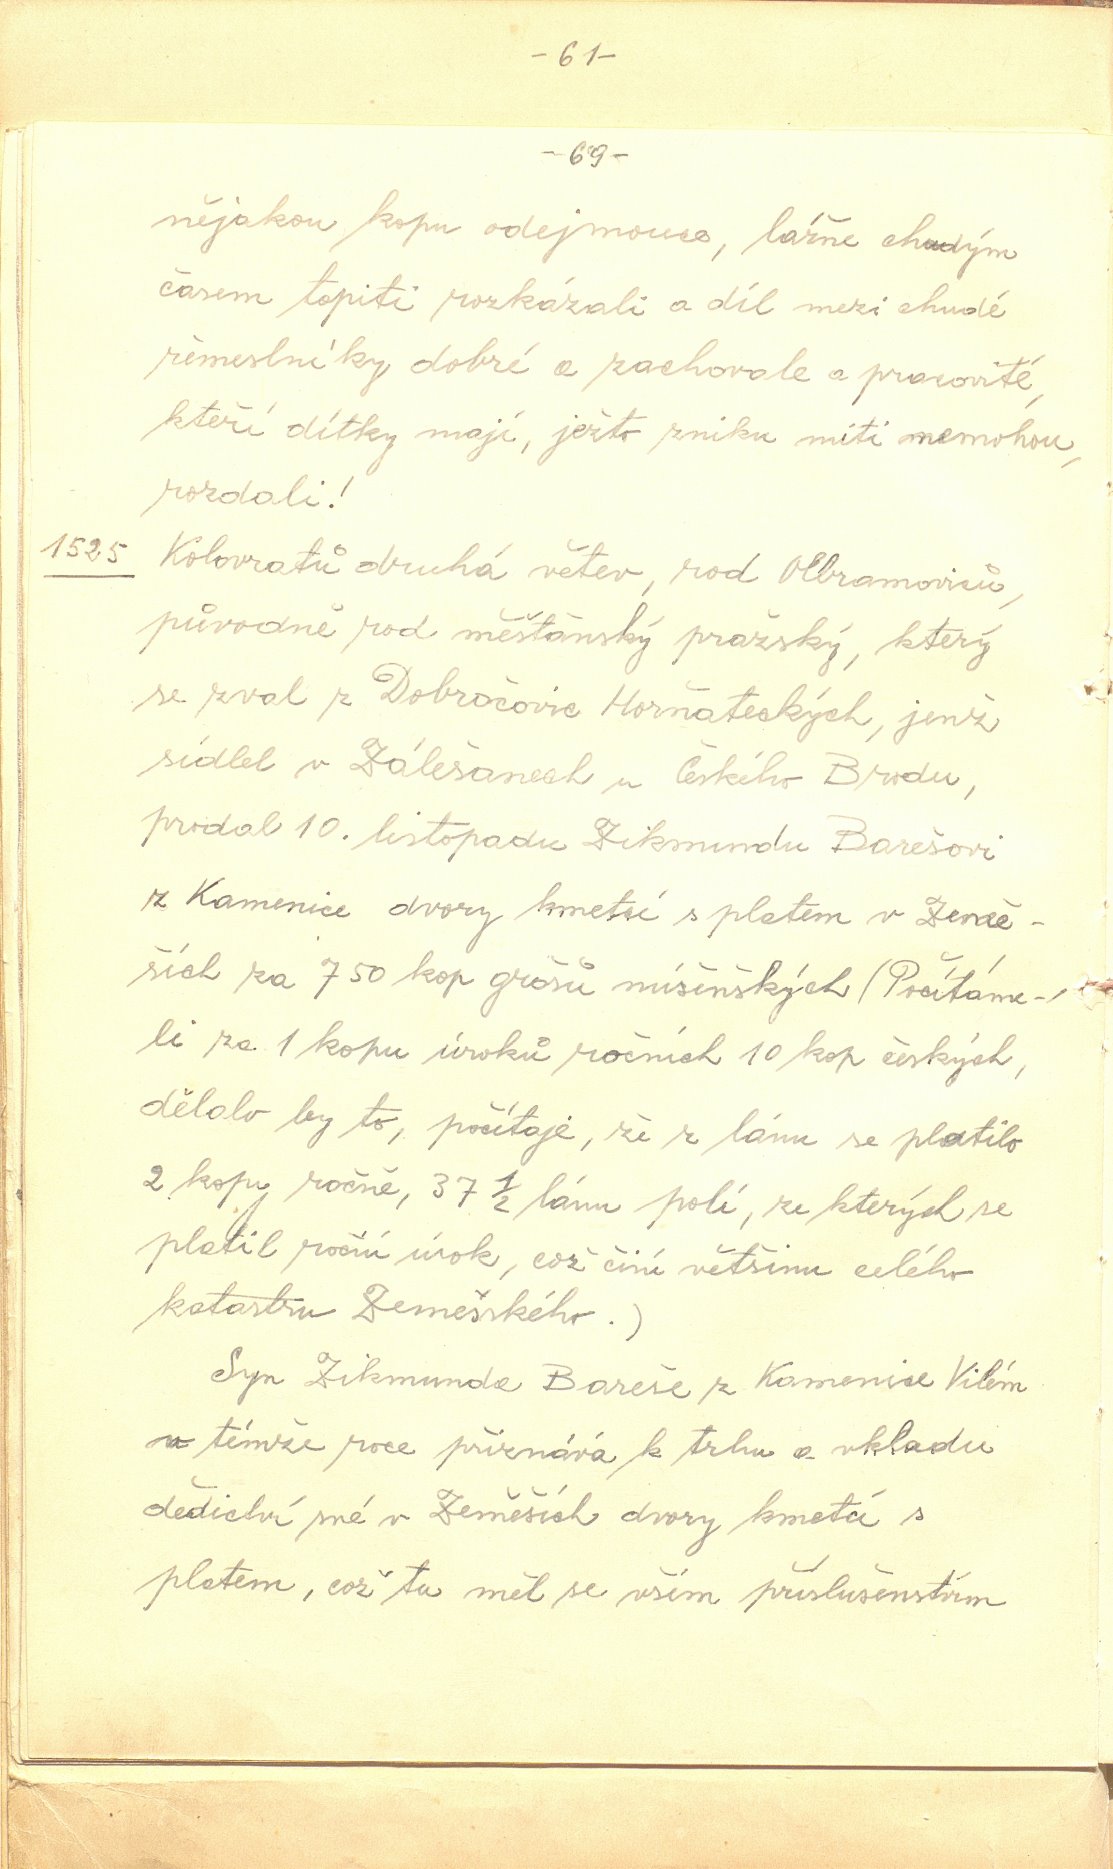 -61-
-69-
nějakou kopu odejmouce, lázňe chudým
časem topiti rozkázali a díl mezi chudé
řemeslníky dobré a zachovale a pracovité,
kteří dítky mají, ježto zniku míti nemohou,
rozdali!
1525 Kolovratů druhá větev, rod Olbramoviců,
původně rod měšťánský pražský, který
se zval z Dobročovic Horňateckých, jenž
sídlel v Zálešanech u Českého Brodu,
prodal 10. listopadu Zikmundu Barešovi
z Kamenice dvory kmetcí s platem v Země-
ších za 750 kop grošů míšeňských (Počítáme-
li za 1 kopu úroků ročních 10 kop českých,
dělalo by to, počítaje, že z lánu se platilo
2 kopy ročně, 37 1/2 lánu polí, ze kterých se
platil roční úrok, což činí většinu celého
katastru Zeměšského.)
Syn Zikmunda Bareše z Kamenice Vilém
v témže roce přiznává k trhu a vkladu
dědictví své v Zeměších dvory kmetcí s
platem, což tu měl se vším příslušenstvím